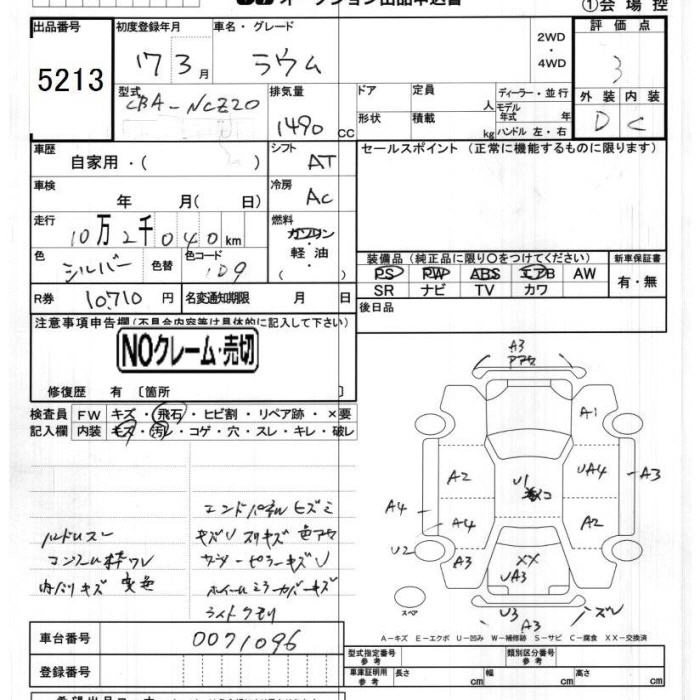 ①会場控
出品番号 初度登録年月 車名・グレード 2WD・4WD 評価点
5213 17 3月 ラウム 3
型式 排気量 ドア 定員 人 ディーラー・並行 外装 内装
CBA-NCZ20 1490 cc 形状 積載 kg モデル年式 年 ハンドル 左・右 D C
車歴 シフト セールスポイント (正常に機能するものに限ります)
自家用・( ) AT
車検 年 月( 日) 冷房 AC
走行 燃料
10万2千040km ガソリン
軽油
( )
色 シルバー 色替 色コード 1D9
装備品 (純正品に限り○をつけてください) 新車保証書
PS PW ABS エアB AW 有・無
SR ナビ TV カワ
R券 10,710 円 名変通知期限 月 日
後日品
注意事項申告欄(不具合内容等は具体的に記入して下さい)
NOクレーム・売切
修復歴 有 〔箇所 〕
検査員 FW キズ・飛石・ヒビ割・リペア跡・×要
記入欄 内装 キズ・汚レ・コゲ・穴・スレ・キレ・破レ
エンドパネルヒズミ
ハンドルスレ キズU スリキズ 色アセ
コンソール枠ワレ サイドーピラーキズU
内バリキズ 変色 ホイールミラーカバーキズ
ライトクモリ
A3
アアセ
A1
A2 U1 UA4 A3
A4 A4 A2
U2 A3 XX
UA3
スペア U3 A3 キズU
A-キズ E-エクボ U-凹み W-補修跡 S-サビ C-腐食 XX-交換済
車台番号 0071096
型式指定番号 参考 類別区分番号 参考
登録番号 車庫証明用 参考 長さ cm 幅 cm 高さ cm